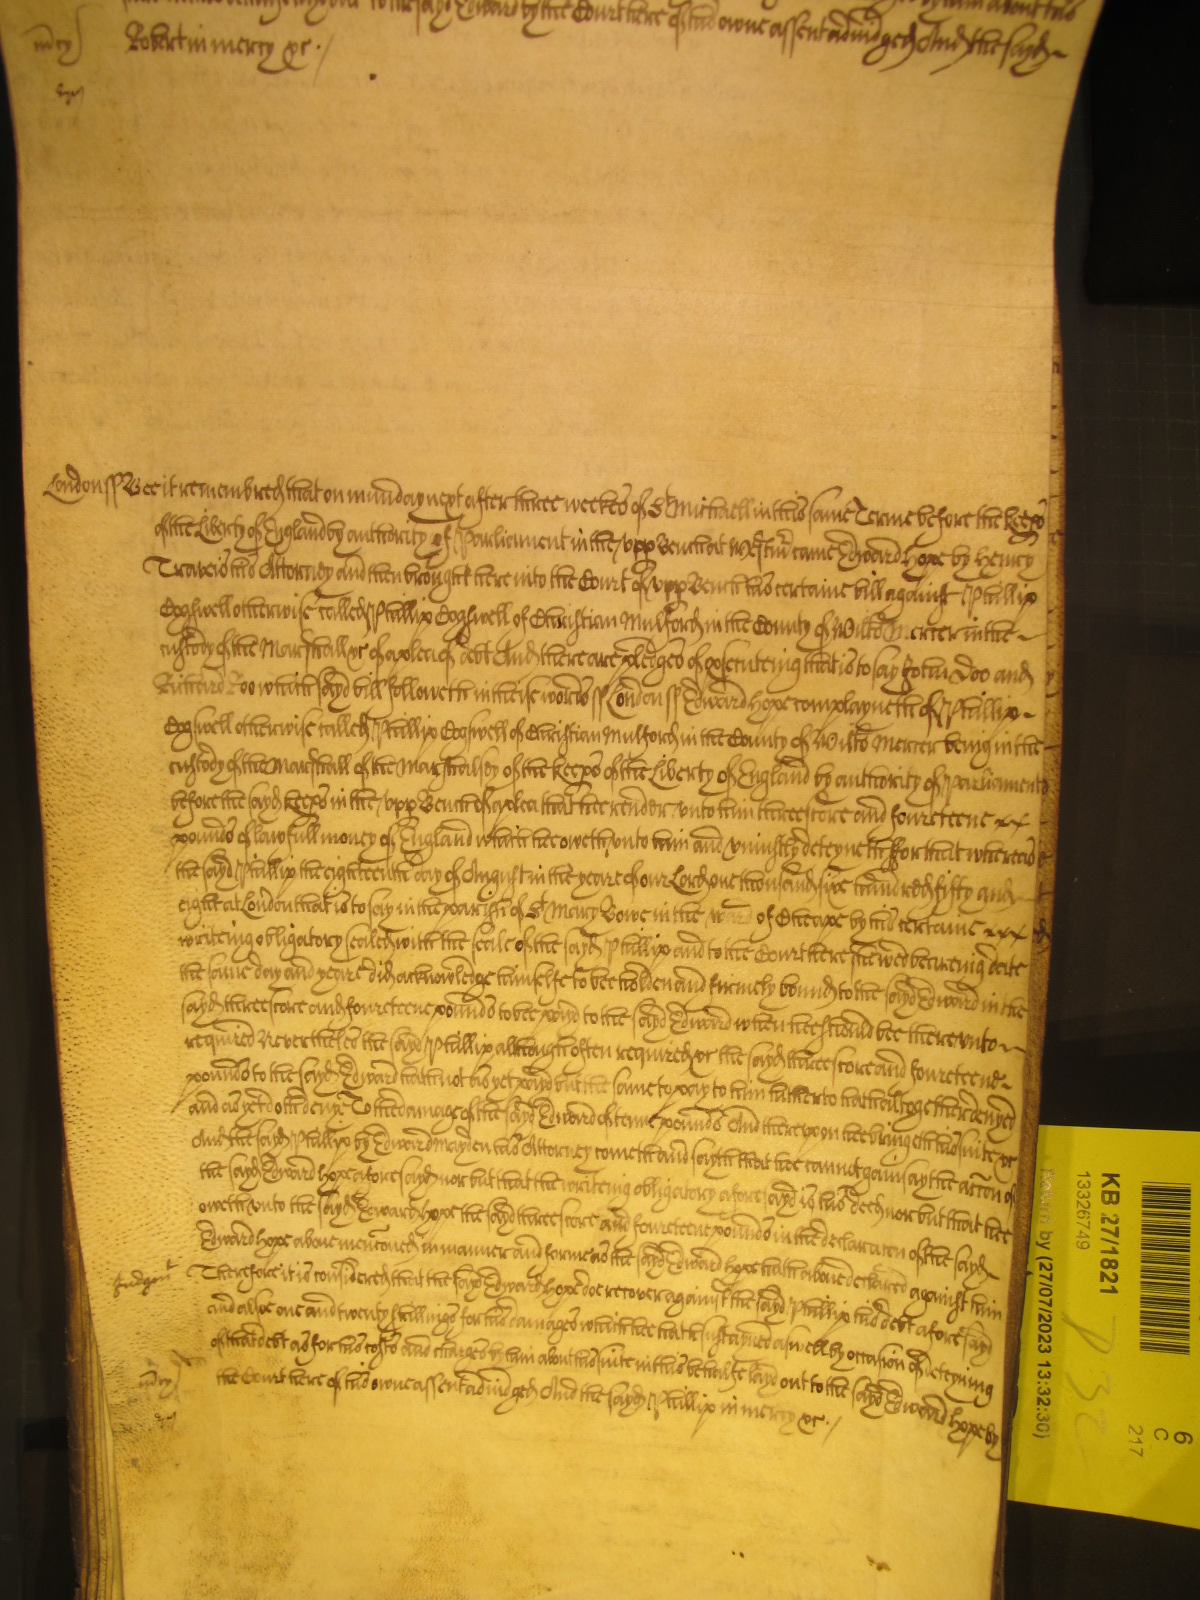 to the sayd Edward by the Court here of his owne assent adiudged And the sayd
m̃cy Robert in mercy &c.
London ss Bee it remembred that on munday next after three weekes of St Michaell in this same Terme before the Keeps
of the Liberty of England by authority of Parliament in the upp Bench at Westm̃ came Edward Hope by Henry
Traveis his Attorney and then brought here into the Court of upp Bench his certaine bill against Phillip
Cogswell otherwise called Phillip Cogswell of Christian Mulford in the County of Wilts Mercer in the
custody of the Marshall &c of a plea of debt And there are pledges of psecuteing that is to say John Doo and
Richard Roo which sayd bill followeth in theise words ss London ss Edward Hope complayneth of Phillip
Cogswell otherwise called Phillip Cogswell of Christian Mulford in the County of Wilts Mercer being in the
custody of the Marshall of the Marshalsey of the Keeps of the Liberty of England by authority of Parliament
before the sayd Keeps in the upp Bench of a plea that hee render unto him threescore and fourteene
pounds of lawfull money of England which hee oweth unto him and uniustly deteyneth for that whereas
the sayd Phillip the eighteenth day of August in the yeare of our Lord one thousand six hundred fifty and
eight at London that is to say in the parish of St Mary Bowe in the Ward of Cheape by his certaine
writeing obligatory sealed with the seale of the sayd Phillip and to the Court here shewed beareing date
the same day and yeare did acknowledge himselfe to bee holden and firmely bound to the sayd Edward in the
sayd threescore and fourteene pounds to bee payd to the sayd Edward when hee should bee thereunto
required Neverthelesse the sayd Phillip although often required &c the sayd threescore and fourteene
pounds to the sayd Edward hath not as yet payd but the same to pay to him hitherto hath alltogether denyed
and as yet doth deny To the damage of the sayd Edward of tenne pounds And thereupon hee bringeth his suite &c
And the sayd Phillip by Edward Mayden his Attorney cometh and sayth that hee cannot gainsay the acc̃on of
the sayd Edward Hope aforesayd nor but that the writeing obligatory aforesayd is his deed nor but that hee
oweth unto the sayd Edward Hope the sayd threescore and fourteene pounds in the declarac̃on of the sayd
Edward Hope above menc̃oned in manner and forme as the sayd Edward Hope hath above declared against him
Judgmt Therefore it is considered that the sayd Edward Hope doe recover against the sayd Phillip his debt aforesayd
and alsoe one and twenty shillings for his damages which hee hath susteyned aswell by occasion of deteyning
of that debt as for his costs and charges by him about his suite in this behalfe layd out to the sayd Edward Hope by
m̃cy the Court here of his owne assent adiudged And the sayd Phillip in mercy &c.
KB 27/1821
13326749
by (27/07/2023 13:32:30)
6
C
217